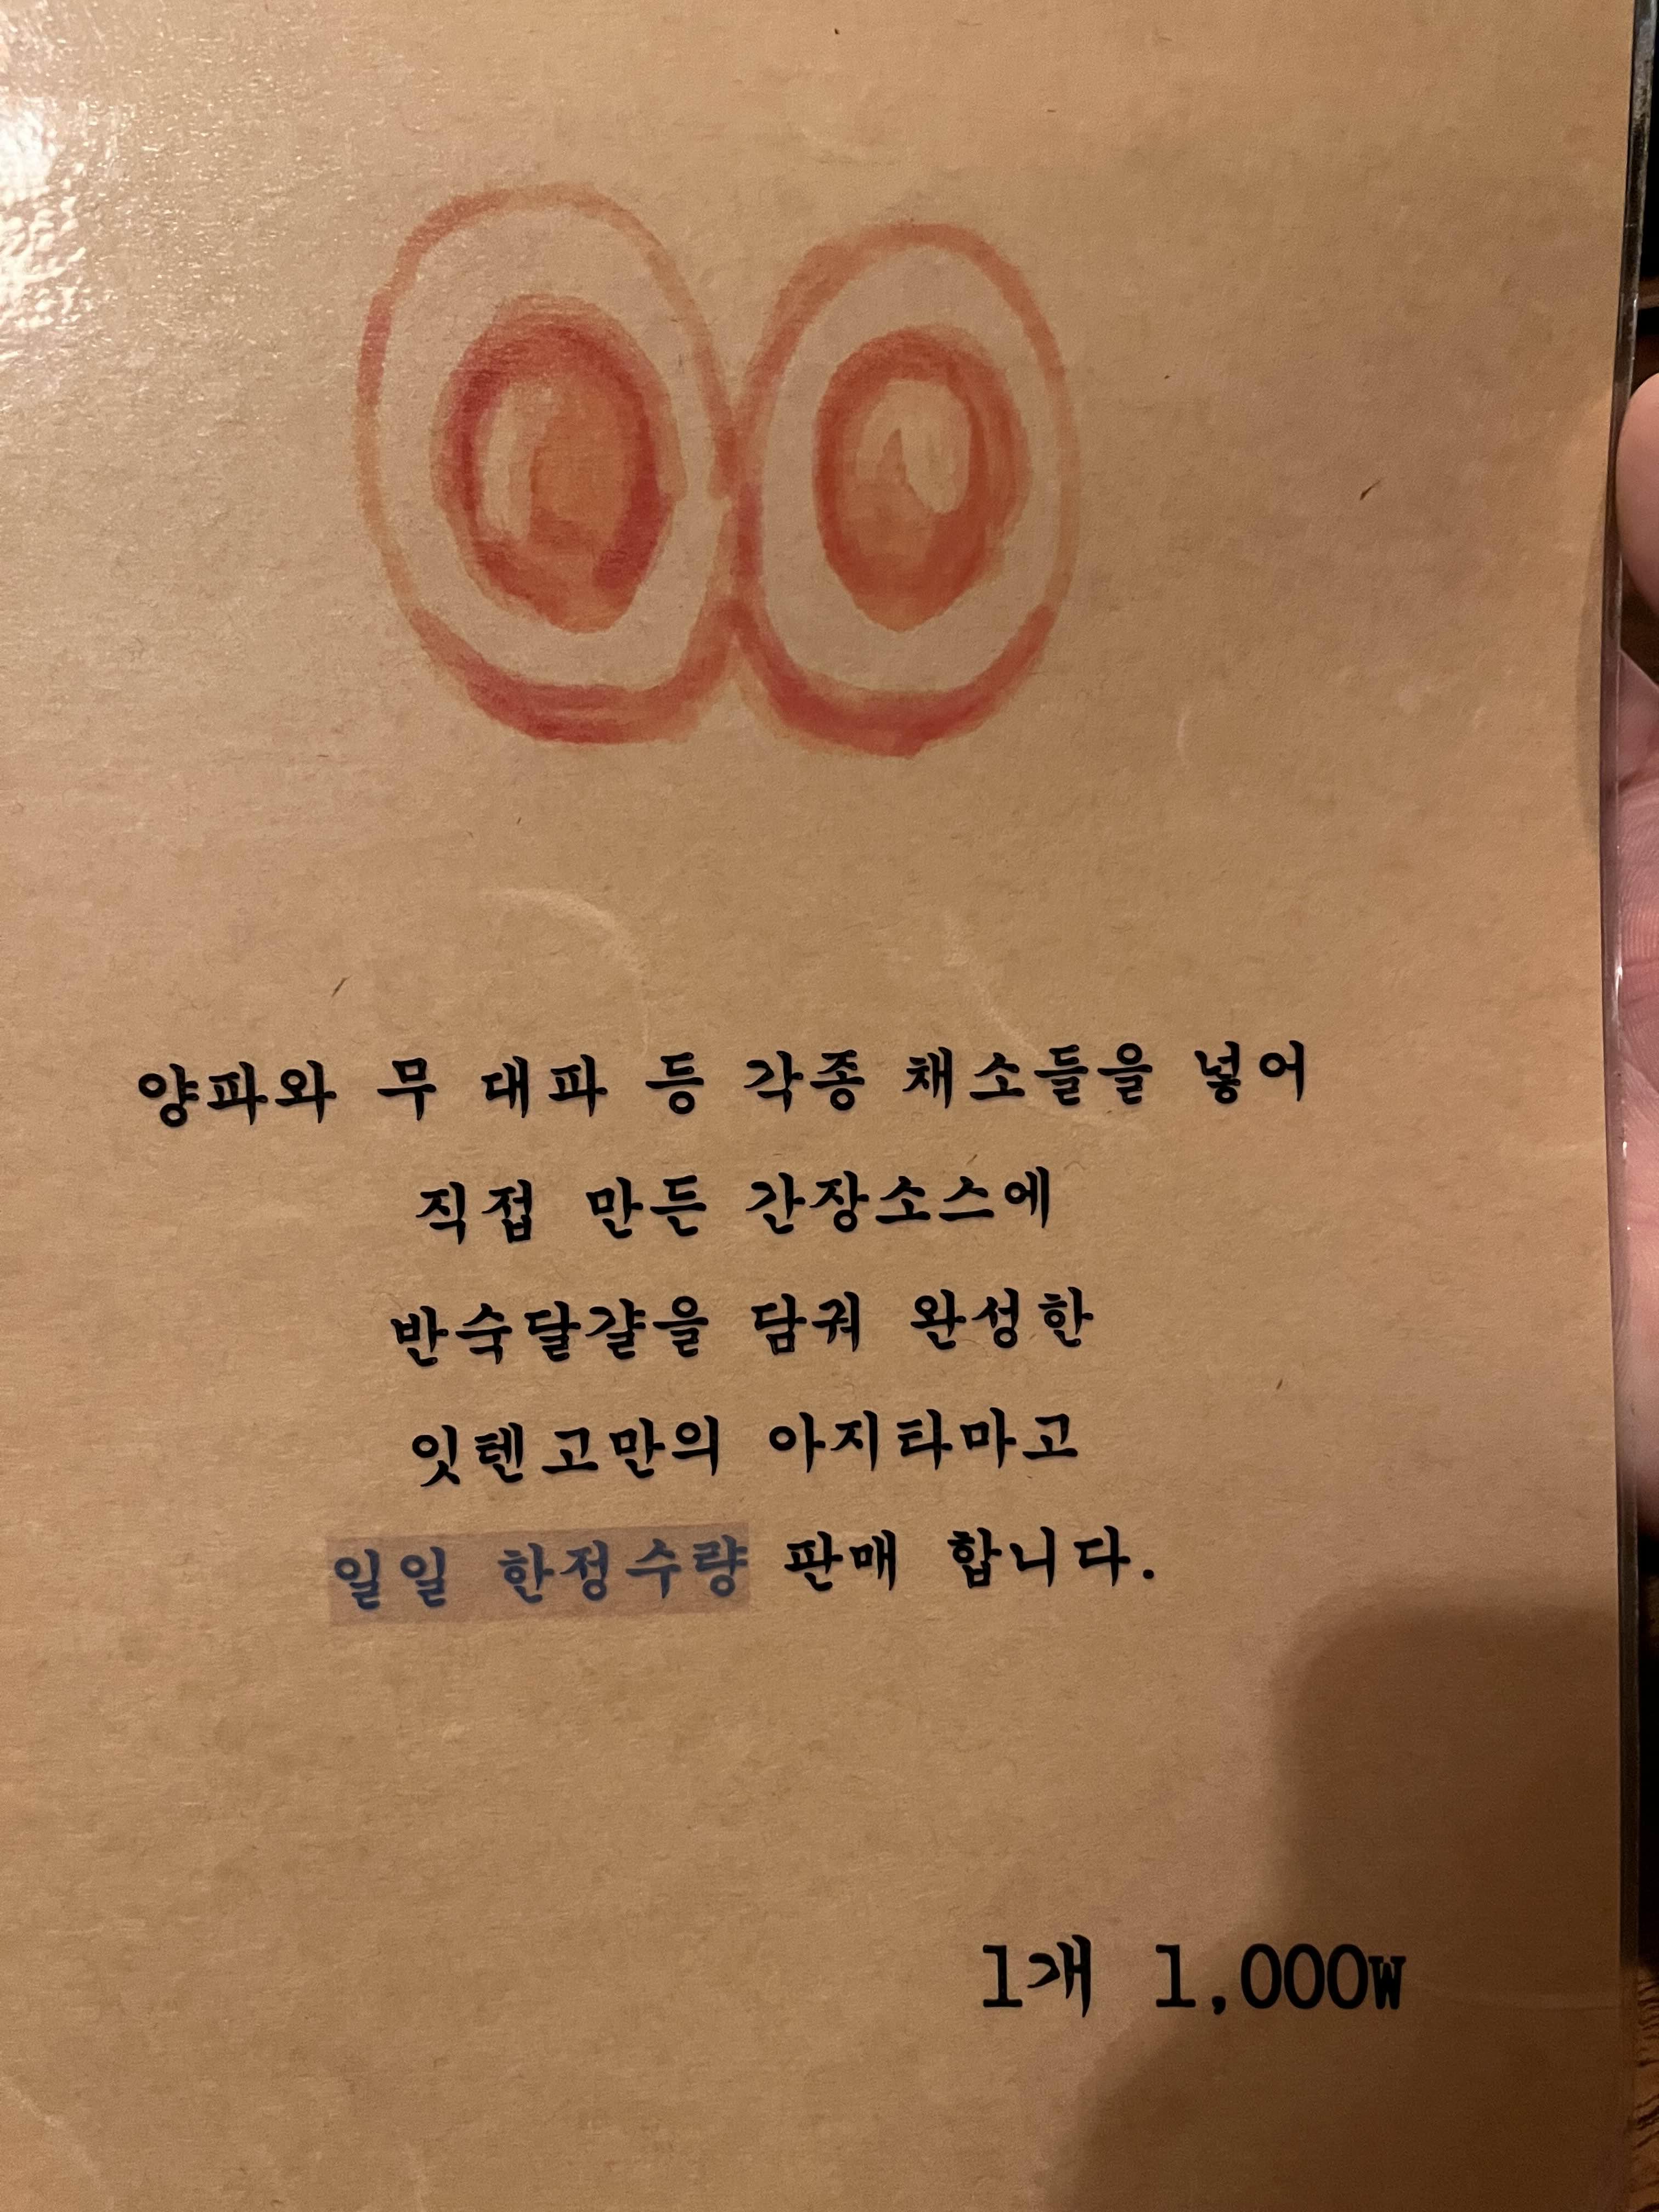 양파와 무 대파 등 각종 채소들을 넣어
직접 만든 간장소스에
반숙달걀을 담궈 완성한
잇텐고만의 아지타마고
일일 한정수량 판매 합니다.
1개 1,000w